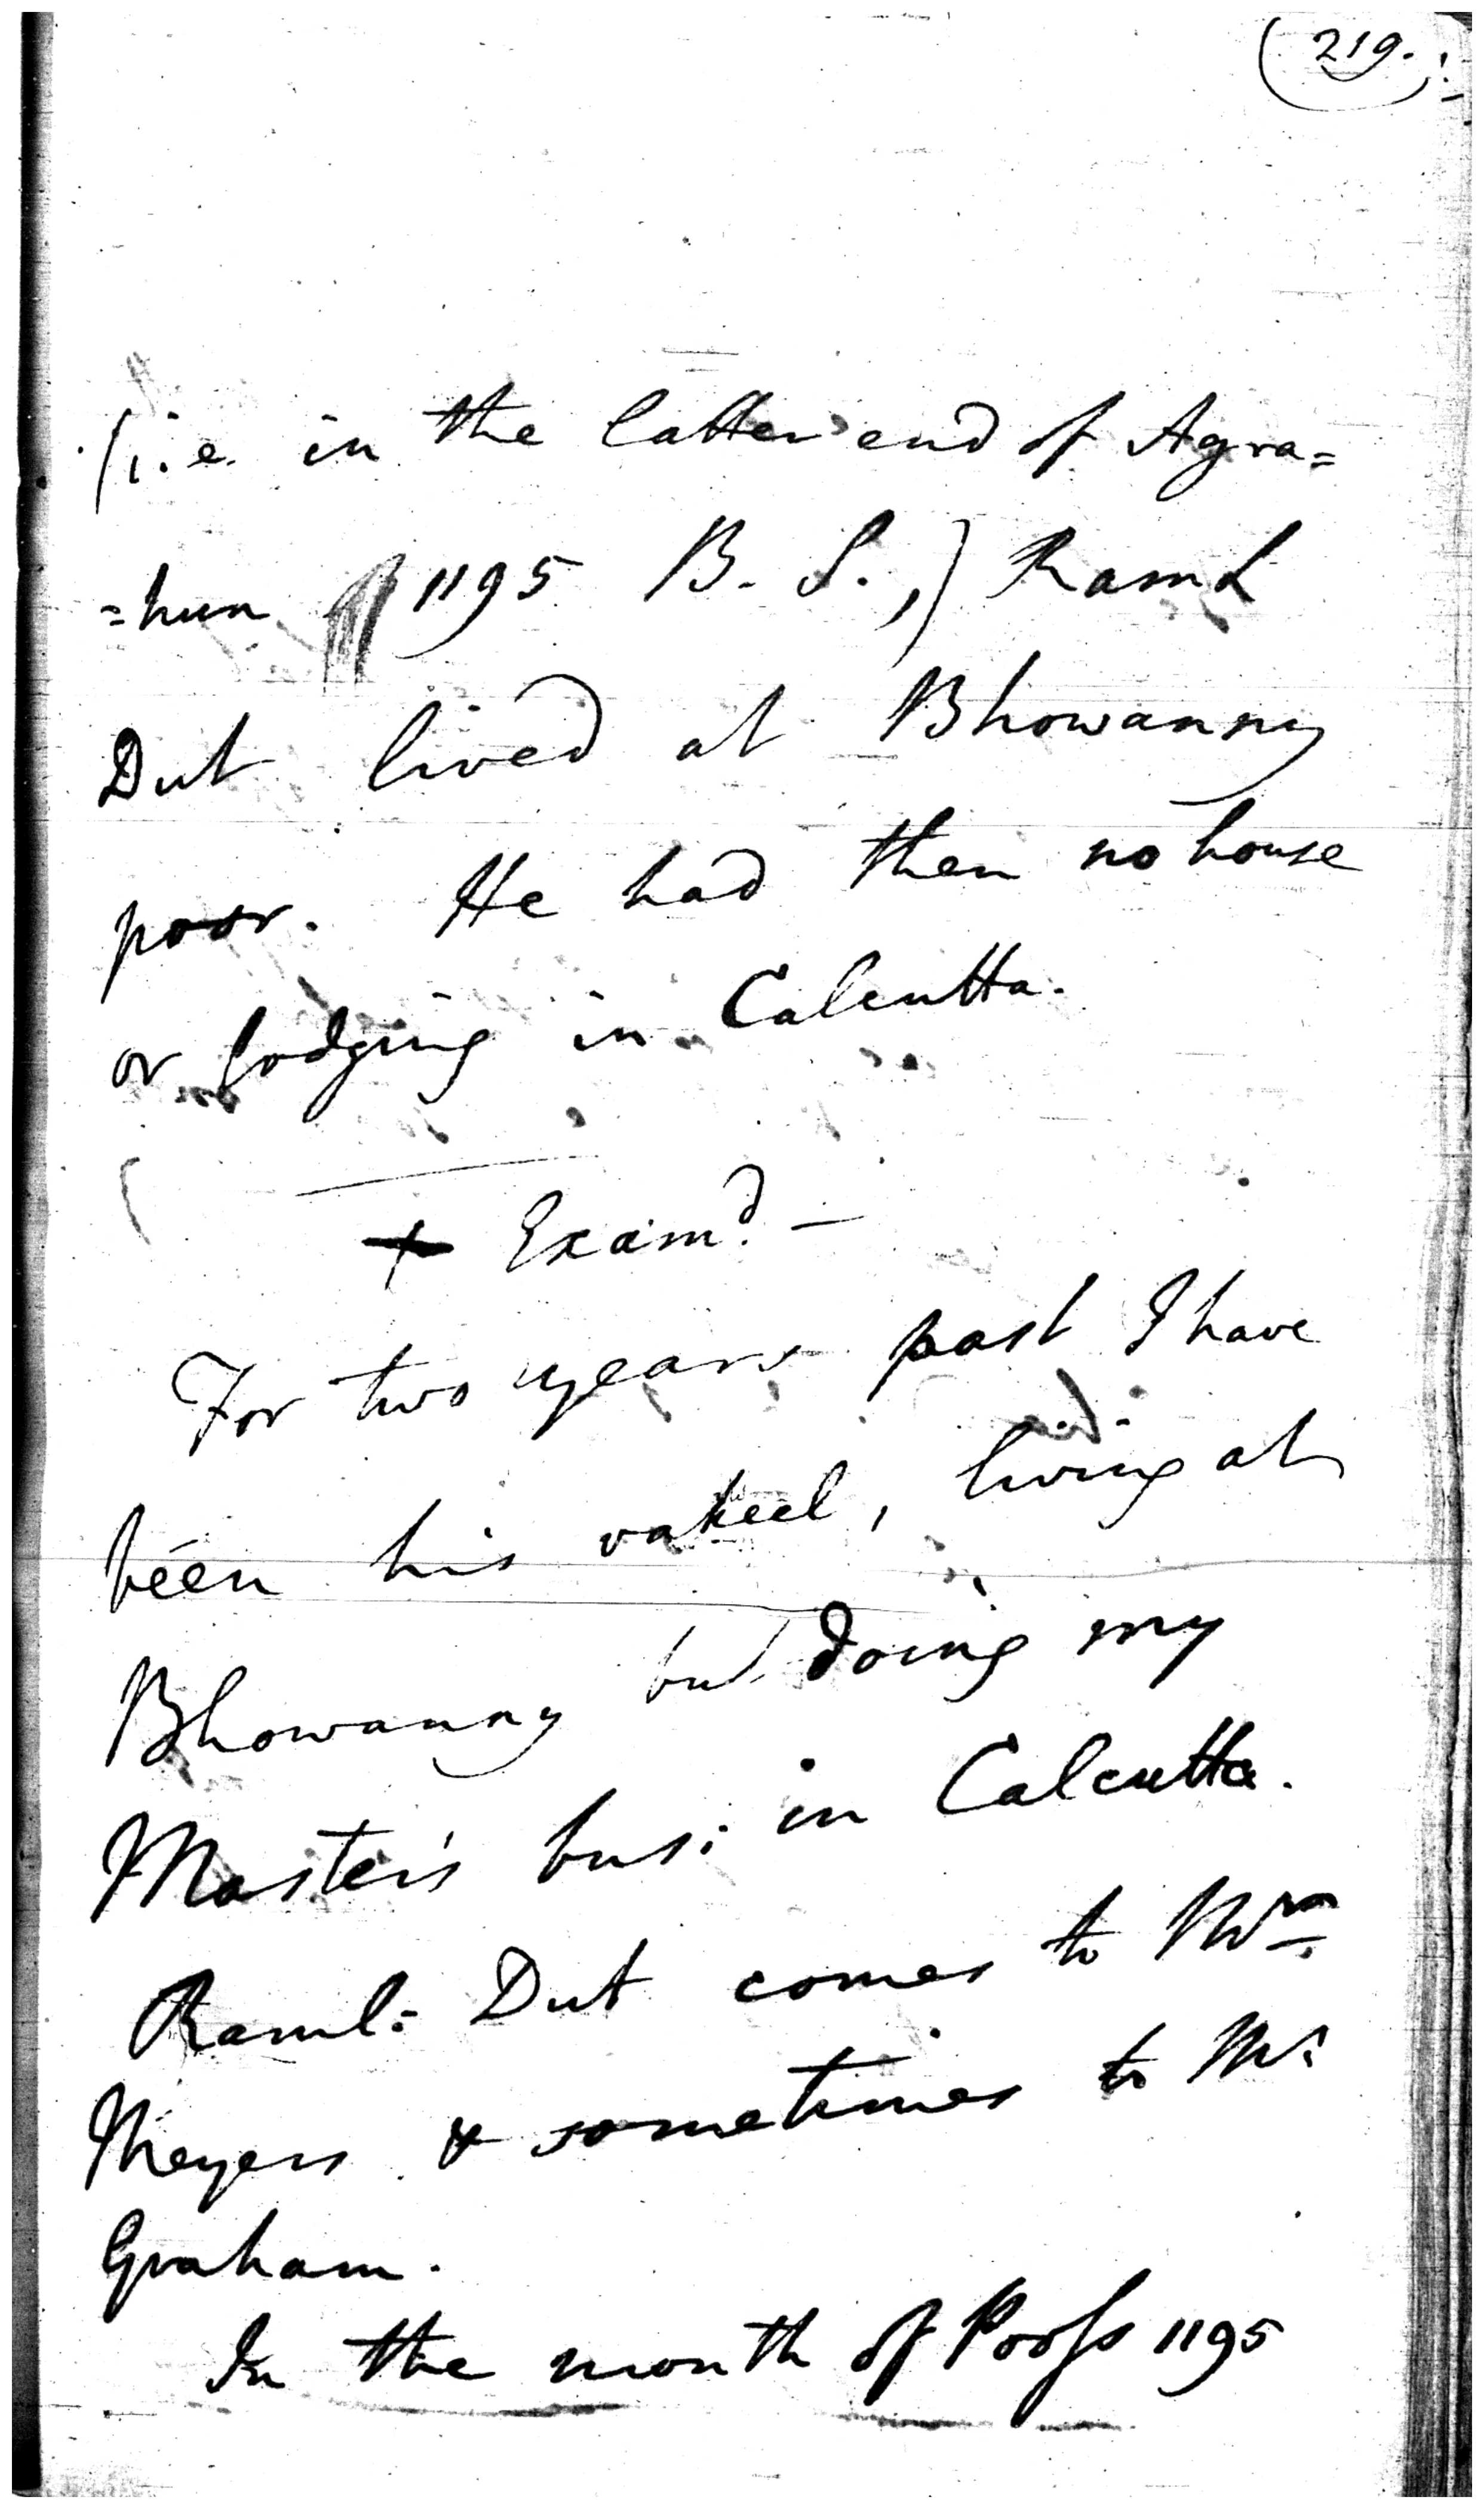 (219.)
(i.e. in the latter end of Agra=
=hun 1195 B. S.,) Raml
Dut lived at Bhowanny
poor. He had then no house
or lodging in Calcutta.
+ Examd. —
For two years past I have
been his vakeel, living at
Bhowanny but doing my
Master's bus: in Calcutta.
Raml: Dut comes to Mr.
Meyers & sometimes to Mr
Graham.
In the month of Pooss 1195